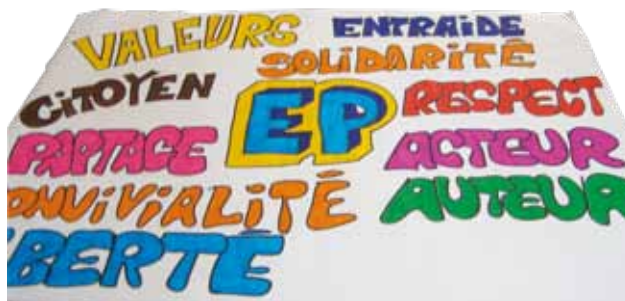 VALEURS ENTRAIDE
SOLIDARITÉ
CITOYEN EP RESPECT
PARTAGE ACTEUR
ONVIVIALITÉ AUTEUR
BERTÉ